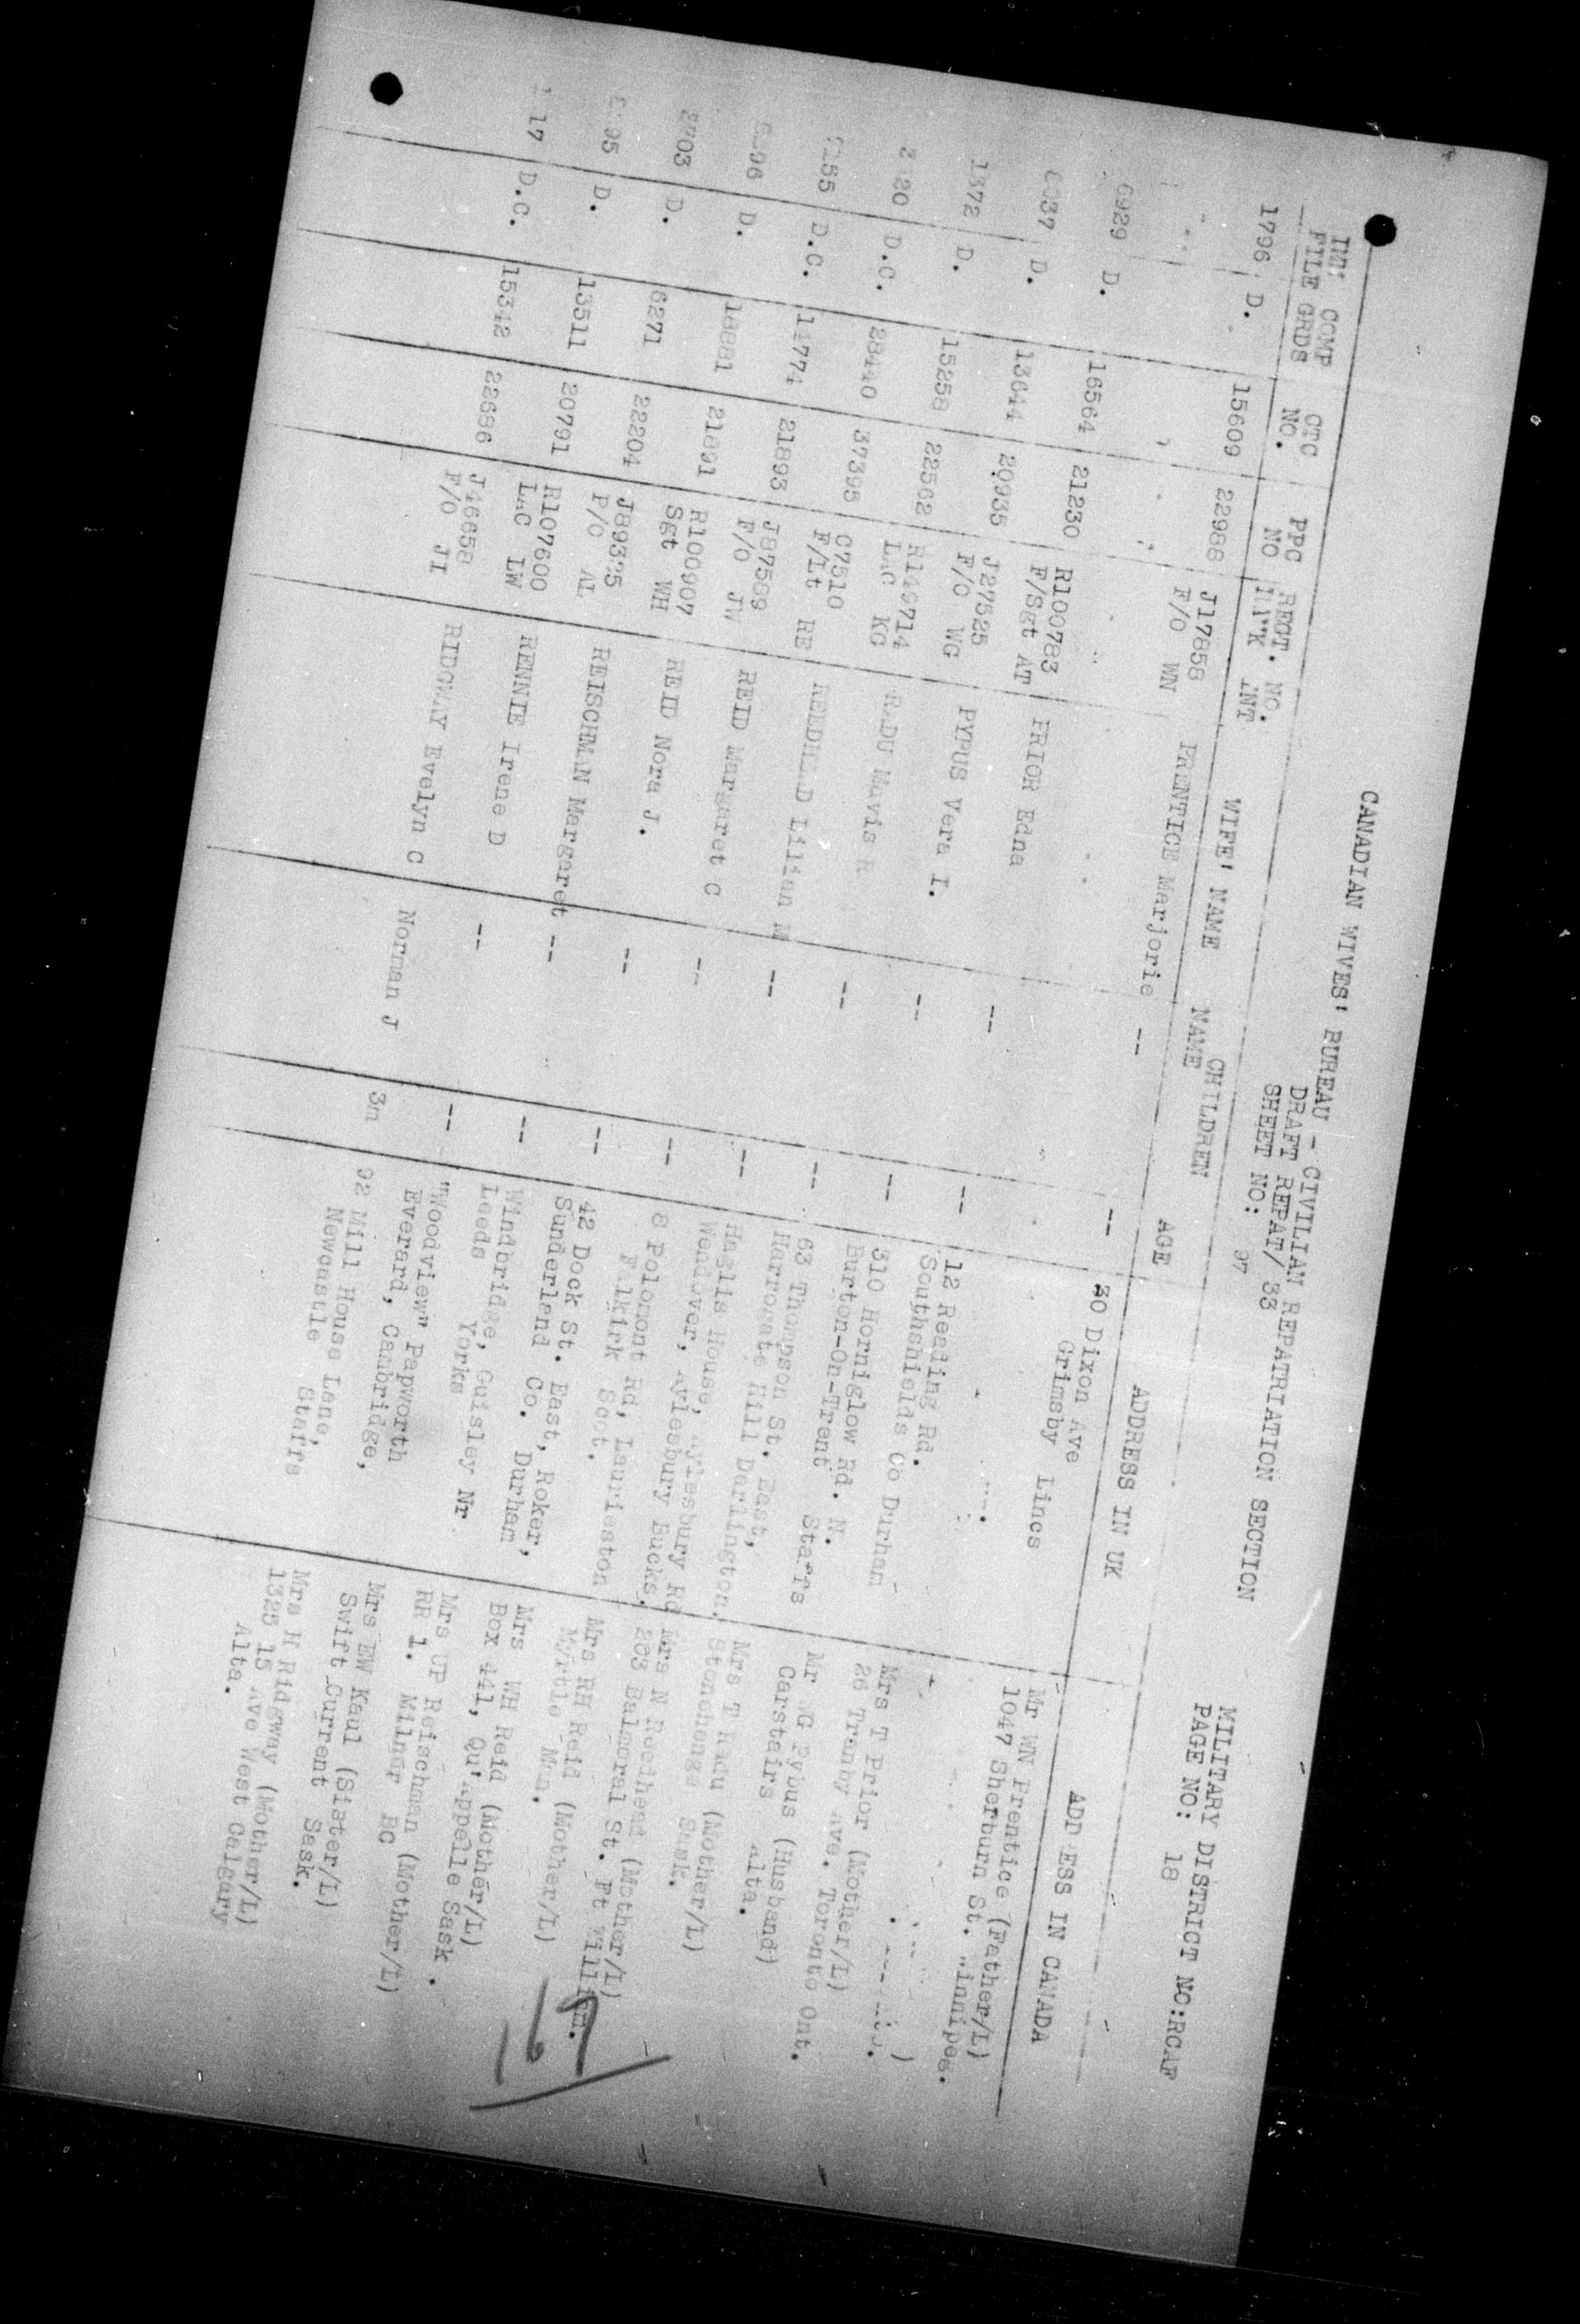 CANADIAN WIVES' BUREAU - CIVILIAN REPATRIATION SECTION
DRAFT REPAT/ 33
SHEET NO: 97
MILITARY DISTRICT NO:RCAF
PAGE NO: 18
IMM: COMP CTC PPC REGT. NO. WIFE' NAME CHILDREN AGE ADDRESS IN UK ADDRESS IN CANADA
FILE GRDS NO. NO RANK INT NAME
1796 D. 15609 22988 J17858 PRENTICE Marjorie -- -- 30 Dixon Ave Mr WN Prentice (Father/L)
F/O WN Grimsby Lincs 1047 Sherburn St. Winnipeg.
6929 D. 16564 21230 R100783 PRIOR Edna -- -- 12 Reading Rd. Mrs T Prior (Mother/L)
F/Sgt AT Southshields Co Durham 26 Tranby Ave. Toronto Ont.
D. 13644 20935 J27525 PYBUS Vera I. -- -- 310 Horniglow Rd. N. Mr WG Pybus (Husband)
F/O WG Burton-On-Trent Staffs Carstairs Alta.
1372 D. 15258 22562 R149714 RADU Mavis R -- -- 63 Thompson St. East, Mrs T Radu (Mother/L)
LAC KG Harrowgate Hill Darlington. Stonehenge Sask.
D.C. 28440 37395 C7510 REEDHEAD Lilian M -- -- Haglis House, Aylesbury Rd Mrs N Reedhead (Mother/L)
F/Lt RE Wendover, Aylesbury Bucks. 203 Balmoral St. Ft William.
D.C. 14774 21893 J87589 REID Margaret C -- -- 8 Polomont Rd, Laurieston Mrs RH Reid (Mother/L)
F/O JW Falkirk Scot. Myrtle Man.
D. 18881 21891 R100907 REID Nora J. -- -- 42 Dock St. East, Roker, Mrs WH Reid (Mother/L)
Sgt WH Sunderland Co. Durham Box 441, Qu'Appelle Sask.
D. 6271 22204 J89325 REISCHMAN Margaret -- -- Windbridge, Guisley Nr Mrs UP Reischman (Mother/L)
P/O AL Leeds Yorks RR 1. Milner BC
D. 13511 20791 R107600 RENNIE Irene D -- -- "Woodview" Papworth Mrs EW Kaul (Sister/L)
LAC LW Everard, Cambridge, Swift Current Sask.
D.C. 15342 22686 J46658 RIDGWAY Evelyn C Norman J 3n 92 Mill House Lane, Mrs H Ridgway (Mother/L)
F/O JI Newcastle Staffs 1325 15 Ave West Calgary
Alta.
167